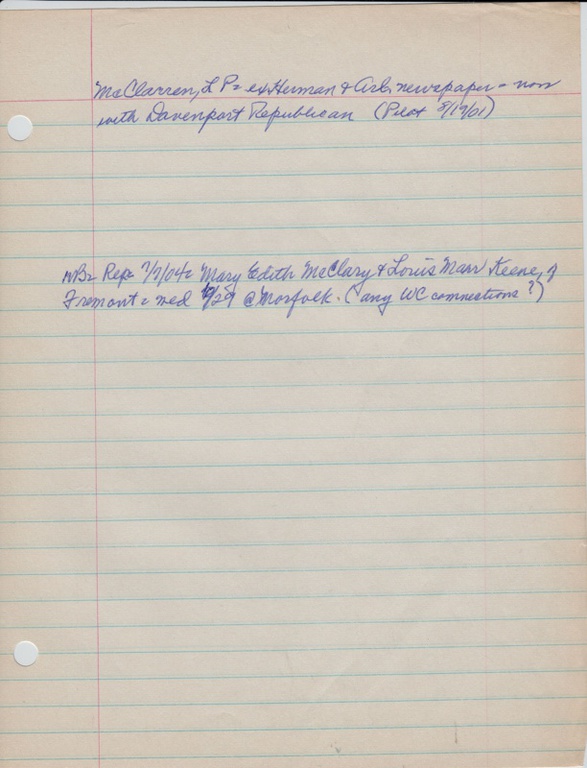 McClarren, L P = ex Herman & Arl. newspaper - now
with Davenport Republican (Pilot 8/19/01)
NB = Rep = 7/7/04 = Mary Edith McClary & Louis Marr Keene, of
Fremont = wed /29 @ Norfolk. (any WC connections?)